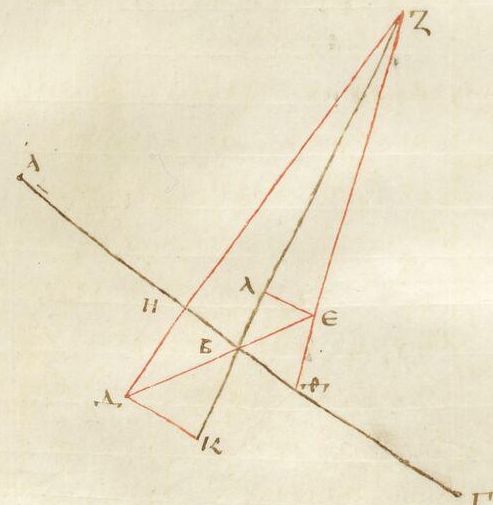 Ζ
Α
Λ
Η
Ε
Β
Θ
Δ
Κ
Γ